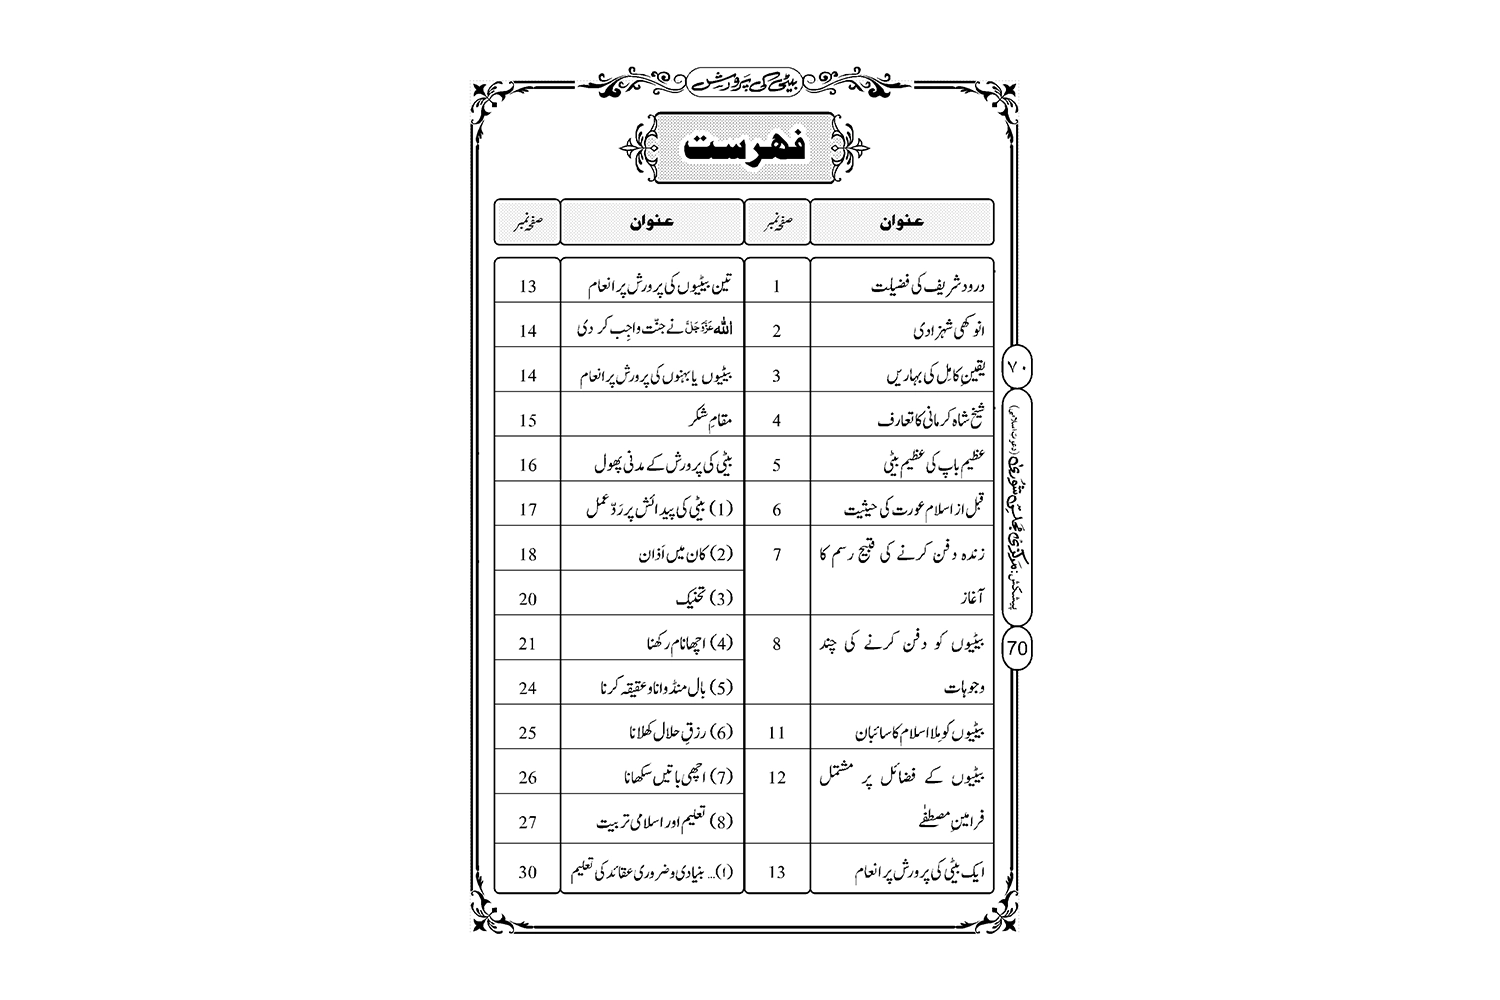 بیٹی کی پرورش
فہرست
عنوان صفحہ نمبر عنوان صفحہ نمبر
درود شریف کی فضیلت 1 تین بیٹیوں کی پرورش پر انعام 13
انوکھی شہزادی 2 اللہ عَزَّوَجَلَّ نے جنّت واجِب کر دی 14
یقینِ کامِل کی بہاریں 3 بیٹیوں یا بہنوں کی پرورش پر انعام 14
شیخ شاہ کرمانی کا تعارف 4 مقامِ شکر 15
عظیم باپ کی عظیم بیٹی 5 بیٹی کی پرورش کے مدنی پھول 16
قبل از اسلام عورت کی حیثیت 6 (1) بیٹی کی پیدائش پر رَدِّ عمل 17
زندہ دفن کرنے کی قبیح رسم کا 7 (2) کان میں اَذان 18
آغاز (3) تحنیک 20
بیٹیوں کو دفن کرنے کی چند 8 (4) اچھا نام رکھنا 21
وجوہات (5) بال منڈوانا و عقیقہ کرنا 24
بیٹیوں کو مِلا اسلام کا سائبان 11 (6) رزقِ حلال کھلانا 25
بیٹیوں کے فضائل پر مشتمل 12 (7) اچھی باتیں سکھانا 26
فرامینِ مصطفٰے (8) تعلیم اور اسلامی تربیت 27
ایک بیٹی کی پرورش پر انعام 13 (۱)... بنیادی و ضروری عقائد کی تعلیم 30
۷۰
پیشکش: مَرکزی مَجلسِ شُوریٰ (دعوتِ اسلامی)
70